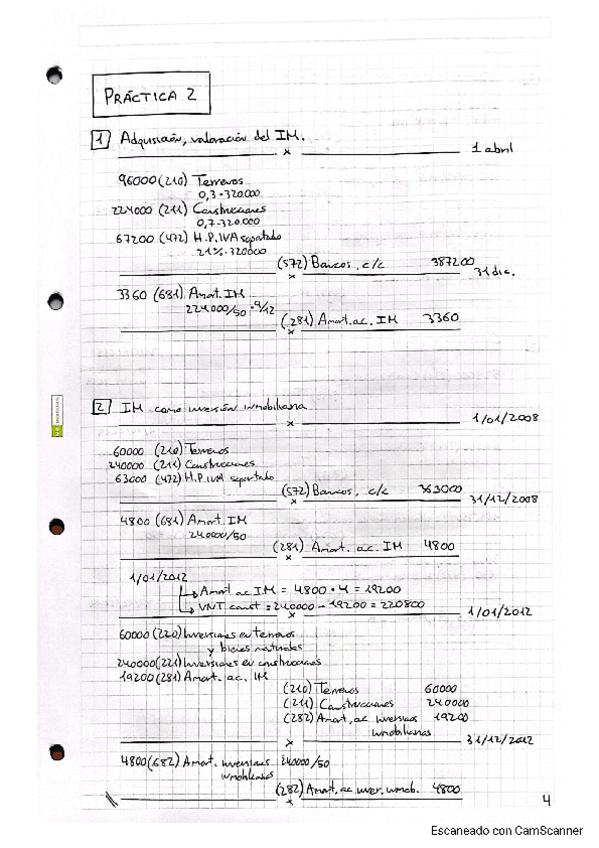 PRÁCTICA 2
1 Adquisición, valoración del IM.
x 1 abril
96000 (210) Terrenos
0,3·320.000
224000 (211) Construcciones
0,7·320.000
67200 (472) H.P. IVA soportado
21%·320000
(572) Bancos, c/c 387200
x 31 dic.
3360 (681) Amort. IM
224000/50 · 9/12
(281) Amort. ac. IM 3360
x
2 IM como inversión inmobiliaria
x 1/01/2008
60000 (210) Terrenos
240000 (211) Construcciones
63000 (472) H.P. IVA soportado
(572) Bancos, c/c 363000
x 31/12/2008
4800 (681) Amort. IM
240000/50
(281) Amort. ac. IM 4800
x
1/01/2012
Amort ac IM = 4800 · 4 = 19200
VNT const = 240000 - 19200 = 220800
x 1/01/2012
60000 (220) Inversiones en terrenos
y bienes naturales
240000 (221) Inversiones en construcciones
19200 (281) Amort. ac. IM
(210) Terrenos 60000
(211) Construcciones 240000
(282) Amort. ac inversiones 19200
inmobiliarias
x 31/12/2012
4800 (682) Amort. inversiones 240000/50
inmobiliarias
(282) Amort. ac inver. inmob. 4800
x
4
Escaneado con CamScanner